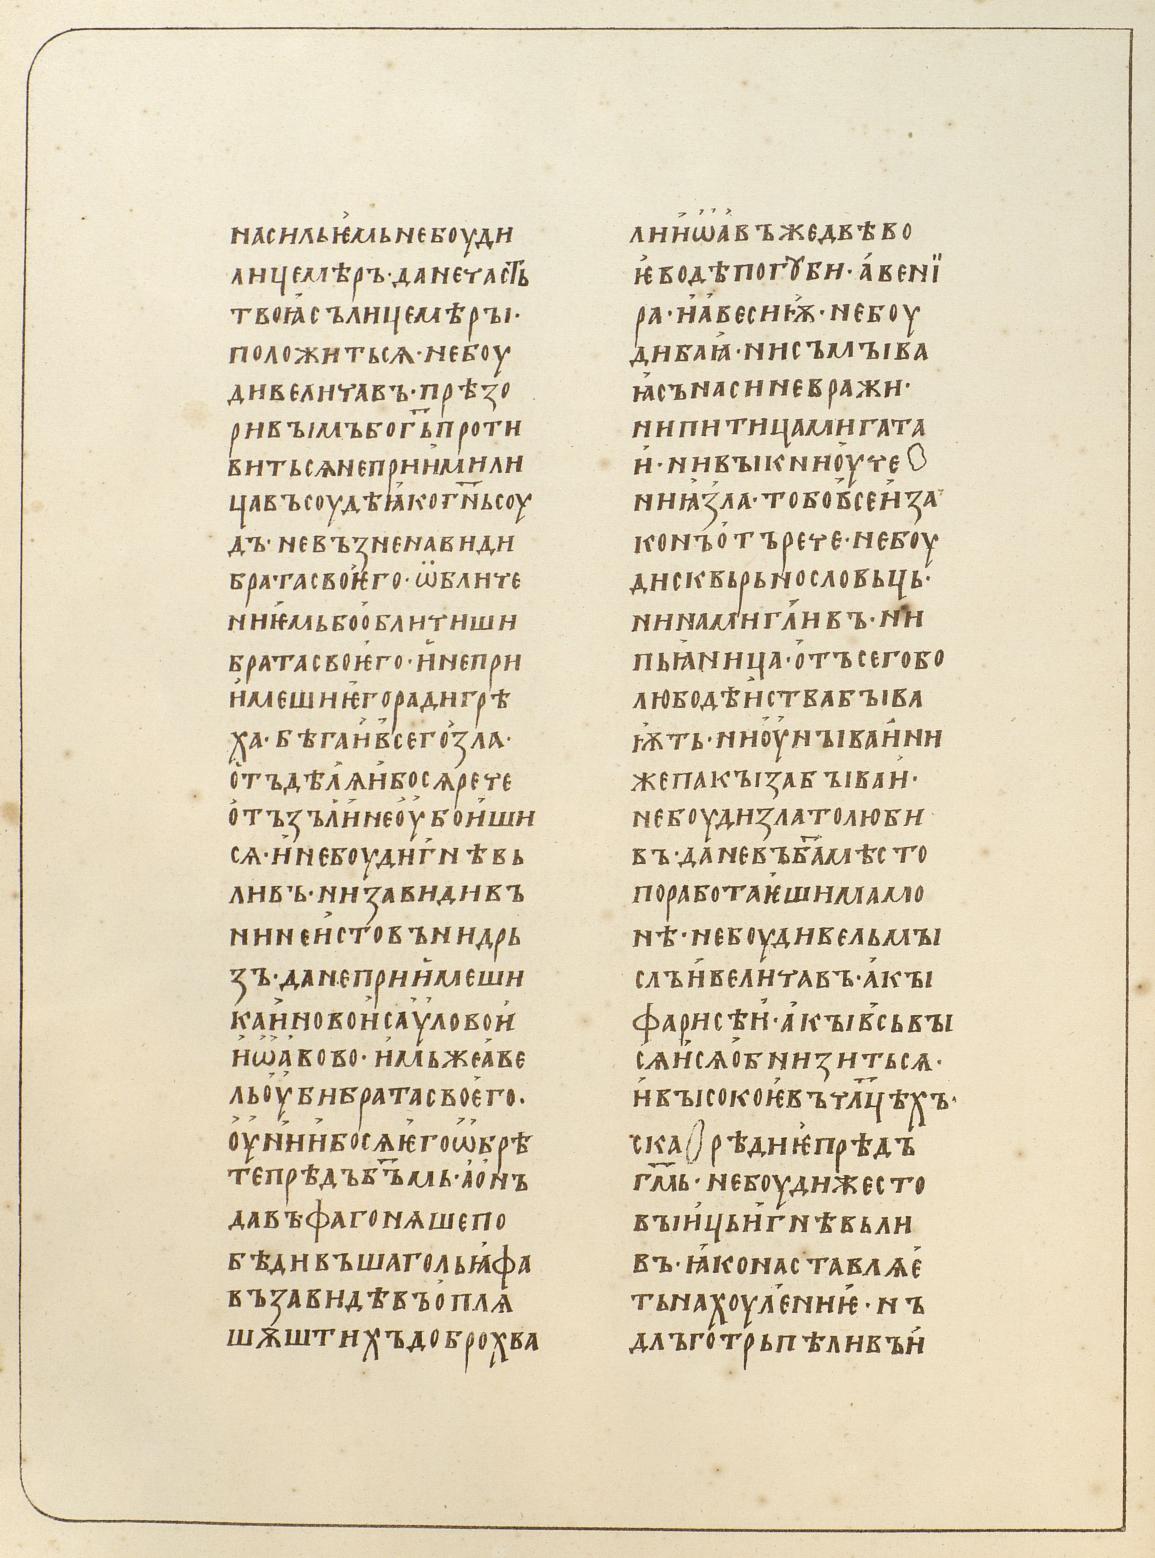 насильѥмь не боуди
лицемѣръ · да не чⷭ҇ть
твоꙗ съ лицемѣры ·
положиться · не боу
ди величавъ · прѣзо
ривымъ бо г҃ь проти
виться не приими ли
ца въ соудѣ ꙗко г҃нь соу
дъ · не възненавиди
брата своѥго · ѿбличе
ниѥмь бо обличиши
брата своѥго · и не при
имеши ѥго ради грѣ
ха · бѣгаи всего зла ·
отъ дѣлѧи бо сѧ рече
отъ зъли не оубоиши
сѧ · и не боуди гнѣвь
ливъ · ни завидивъ
ни неистовъ ни дрь
зъ · да не приимеши
каиновои саоуловои
иѡавово · имьже аве
ль оуби брата своего ·
оунии бо сѧ ѥго ѡбрѣ
те прѣдъ б҃ъмь · а онъ
давъ фагонѧше по
бѣдивъша гольꙗфа
въ завидѣвъ оплѧ
шѫштихъ доброхва
ли иѡавъ же двѣ во
ѥводѣ погꙋби · авени
ра · и авесиѭ · не боу
ди баꙗ · ни съмыва
ꙗ съна си невражи ·
ни питицами гата
и · ни выкни оуче
ниꙗ зла · тобо всеи за
конъ отърече · не боу
ди сквьрьнословьць ·
ни намигливъ · ни
пьꙗница · отъ сего бо
любодѣиства быва
ѭть · ни оунываи ни
же пакы забываи ·
не боуди златолюби
въ · да не въ б҃а мѣсто
поработаѥши мамо
нѣ · не боуди вельмы
слъи величавъ · акы
фарисѣи · акы вьсь вы
сѧи сѧ обнизиться ·
и высокоѥ въ чл҃цѣхъ ·
ска рѣдиѥ прѣдъ
г҃мь · не боуди жесто
выиць и гнѣвьли
въ · ꙗко наставлѧѥ
ть на хоулениѥ · нъ
длъготрьпѣливъ и